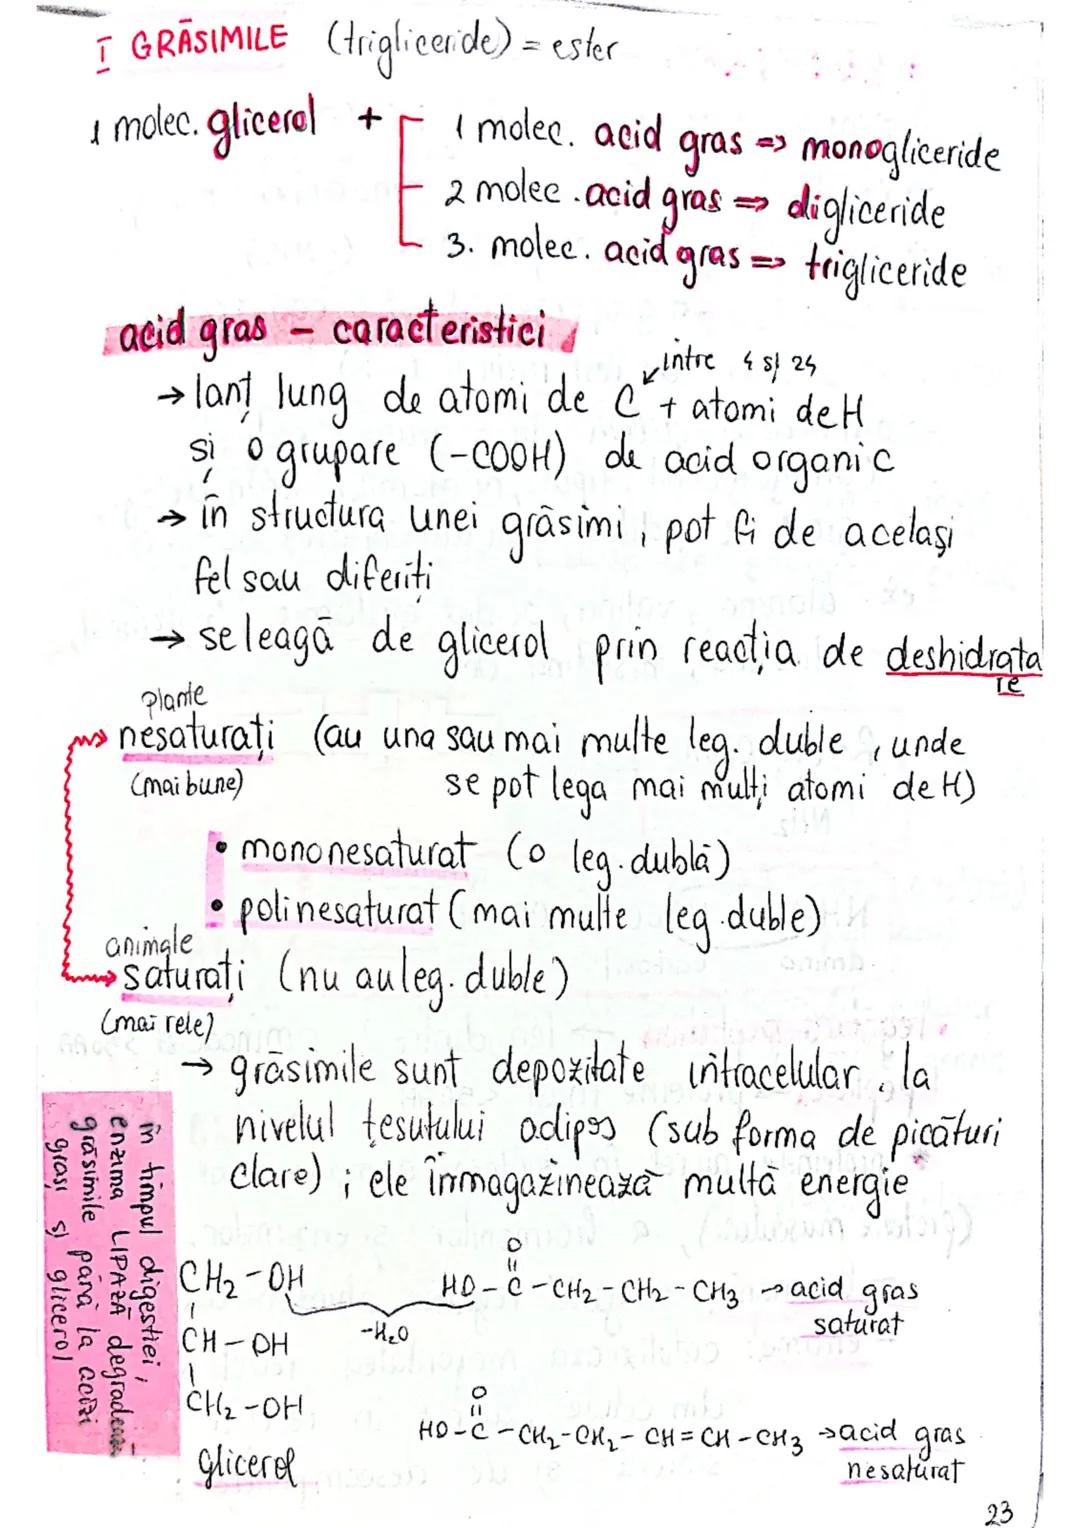 I GRĂSIMILE (trigliceride) = ester
1 molec. glicerol + 1 molec. acid gras => monogliceride
2 molec. acid gras => digliceride
3. molec. acid gras => trigliceride
acid gras - caracteristici
între 4 și 24
→ lanț lung de atomi de C + atomi de H
și o grupare (-COOH) de acid organic
→ în structura unei grăsimi, pot fi de același
fel sau diferiți
→ se leagă de glicerol prin reacția de deshidrata
re
plante
nesaturați (au una sau mai multe leg. duble, unde
(mai bune) se pot lega mai mulți atomi de H)
• mononesaturat (o leg. dublă)
• polinesaturat (mai multe leg. duble)
animale
saturați (nu au leg. duble)
(mai rele)
→ grăsimile sunt depozitate intracelular. la
nivelul țesutului adipos (sub forma de picături
clare); ele înmagazinează multă energie
în timpul digestiei,
enzima LIPAZĂ degradează
grăsimile până la acizi
grași și glicerol
O
||
CH2-OH HO-C-CH2-CH2-CH3 → acid gras
saturat
-H2O
CH-OH
CH2-OH
glicerol
O
||
HO-C-CH2-CH2-CH=CH-CH3 → acid gras
nesaturat
23